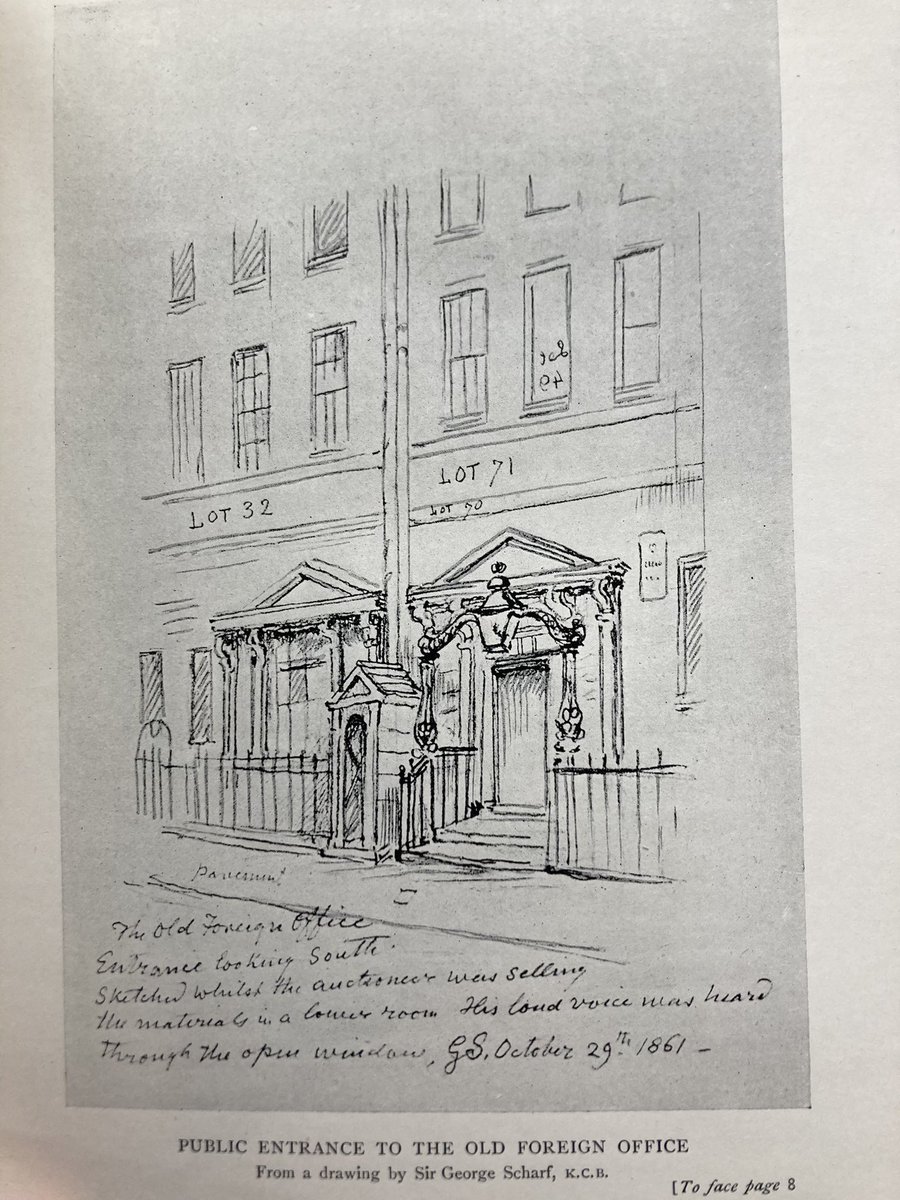 LOT 71
LOT 32
LOT 70
Pavement
The Old Foreign Office
Entrance looking South.
Sketched whilst the auctioneer was selling
the materials in a lower room His loud voice was heard
through the open window, GS. October 29th 1861 –
PUBLIC ENTRANCE TO THE OLD FOREIGN OFFICE
From a drawing by Sir George Scharf, K.C.B.
[To face page 8